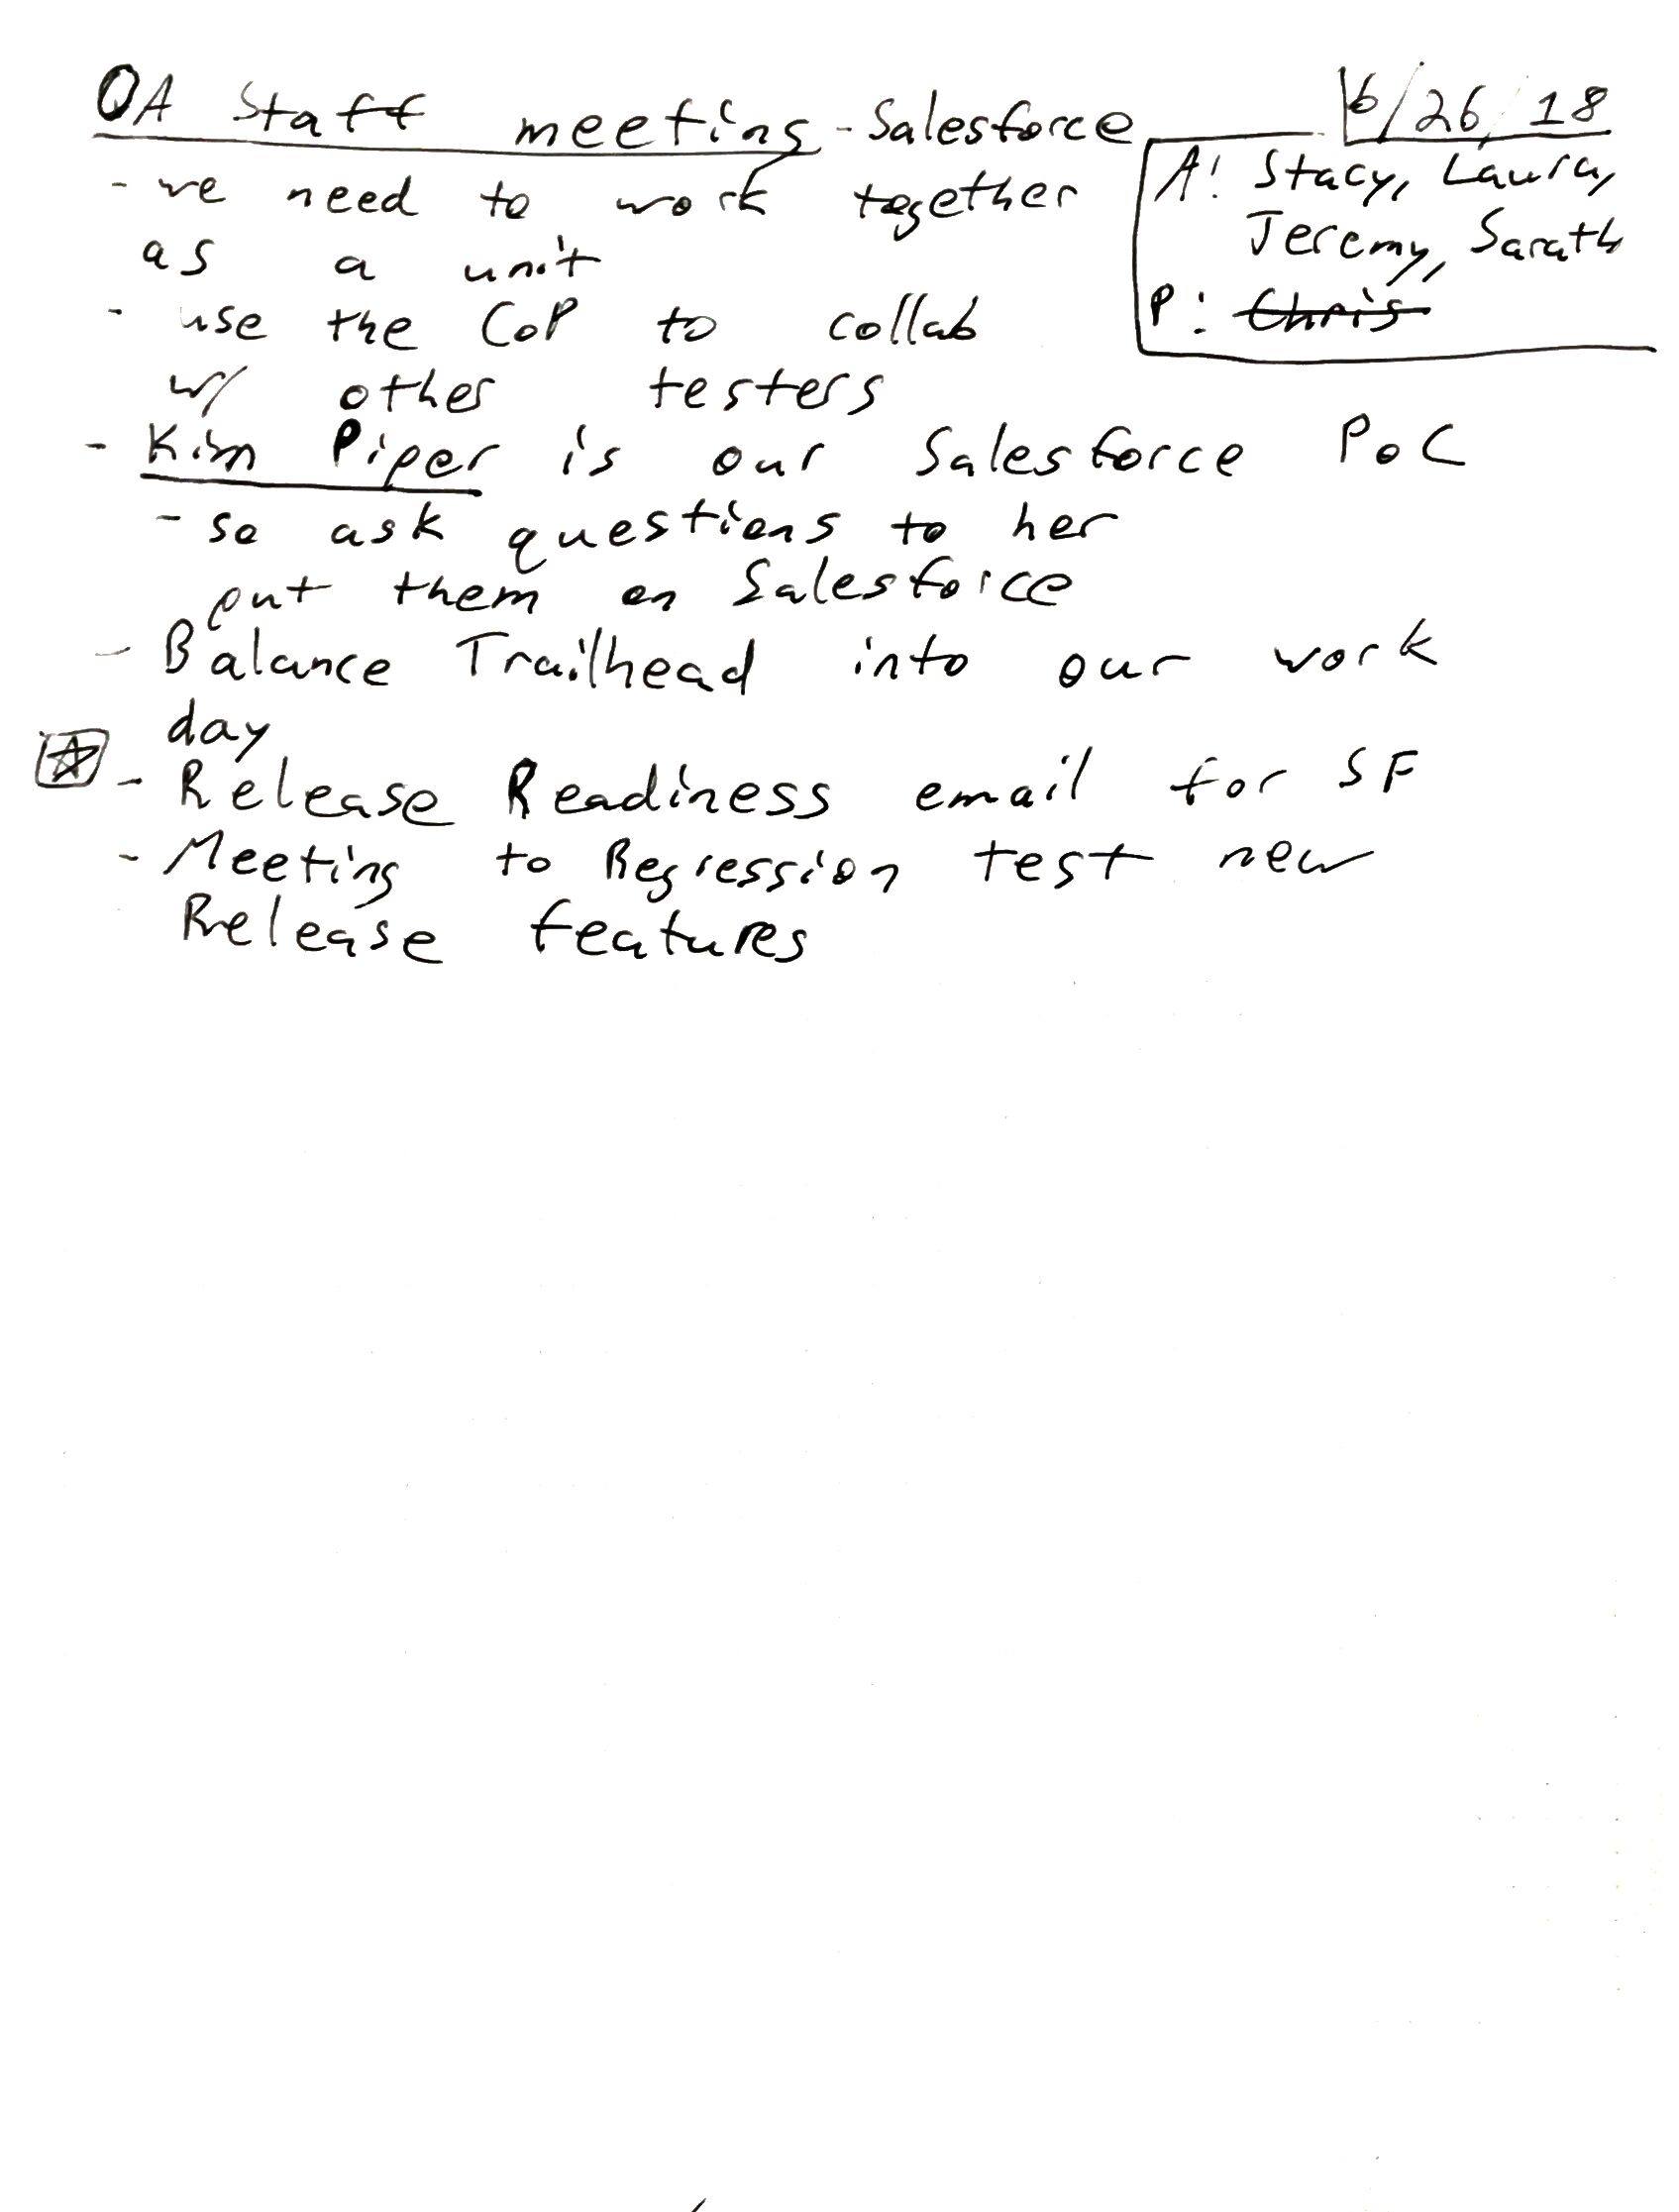 QA Staff meeting - Salesforce
6/26/18
A: Stacy, Laura,
Jeremy, Sarath
P: Chris
- we need to work together
as a unit
- use the CoP to collab
w/ other testers
- Kim Piper is our Salesforce PoC
- so ask questions to her
put them on Salesforce
- Balance Trailhead into our work
day
- Release Readiness email for SF
- Meeting to Regression test new
Release features